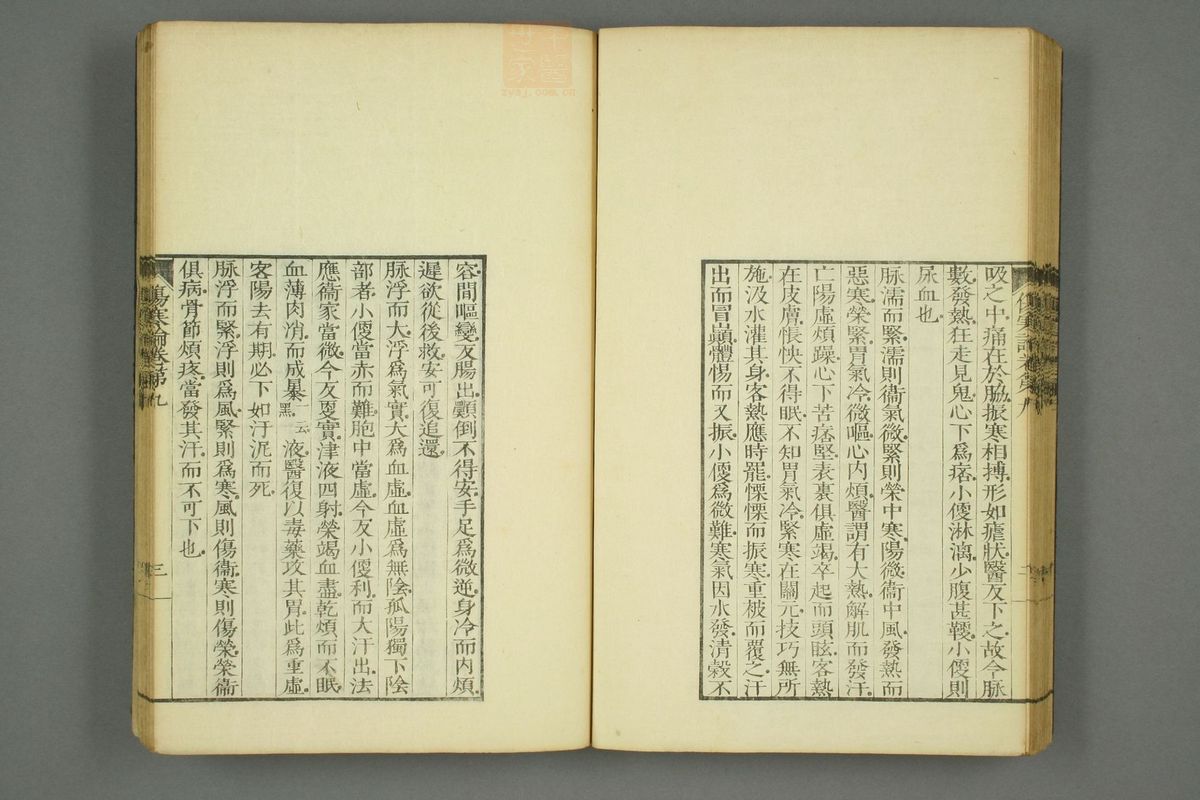 吸之中痛在於脇振寒相搏形如瘧狀醫反下之故令脉
數發熱狂走見鬼心下爲痞小便淋漓少腹甚鞕小便則
尿血也
脉濡而緊濡則衞氣微緊則榮中寒陽微衞中風發熱而
惡寒榮緊胃氣冷微嘔心內煩醫謂有大熱解肌而發汗
亡陽虛煩躁心下苦痞堅表裏俱虛竭卒起而頭眩客熱
在皮膚悵怏不得眠不知胃氣冷緊寒在關元技巧無所
施汲水灌其身客熱應時罷慄慄而振寒重被而覆之汗
出而冒巔體惕而又振小便爲微難寒氣因水發清穀不
容間嘔變反腸出顚倒不得安手足爲微逆身冷而內煩
遲欲從後救安可復追還
脉浮而大浮爲氣實大爲血虛血虛爲無陰孤陽獨下陰
部者小便當赤而難胞中當虛今反小便利而大汗出法
應衞家當微今反更實津液四射榮竭血盡乾煩而不眠
血薄肉消而成暴液醫復以毒藥攻其胃此爲重虛
一云黑
客陽去有期必下如汙泥而死
脉浮而緊浮則爲風緊則爲寒風則傷衞寒則傷榮榮衞
俱病骨節煩疼當發其汗而不可下也
傷寒論卷第九
三
zysj.com.cn